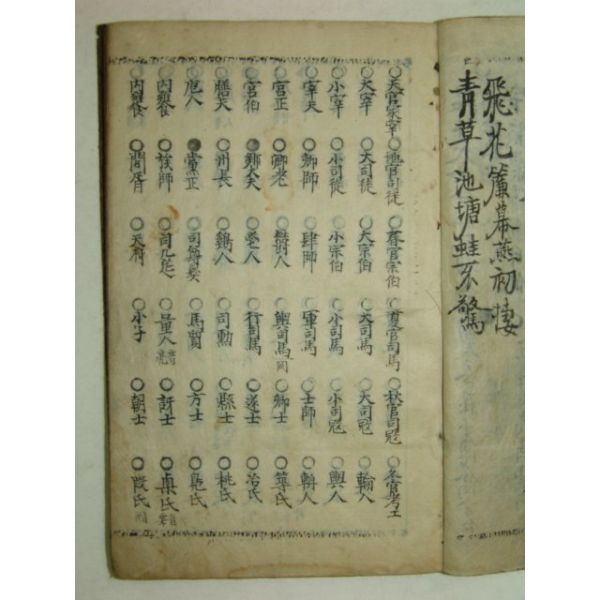 飛花簾幕燕初棲
青草池塘蛙不驚
○天官冢宰 ○地官司徒 ○春官宗伯 ○夏官司馬 ○秋官司寇 ○冬官考工
○大宰 ○大司徒 ○大宗伯 ○大司馬 ○大司寇 ○輪人
○小宰 ○小司徒 ○小宗伯 ○小司馬 ○小司寇 ○輿人
○宰夫 ○鄉師 ○肆師 ○軍司馬 ○士師 ○輈人
○宮正 ○鄉老 ○鬱人 ○輿司馬 ○鄉士 ○築氏
○宮伯 ○鄉大夫 ○鬯人 ○行司馬 ○遂士 ○冶氏
○膳夫 ○州長 ○鷄人 ○司勳 ○縣士 ○桃氏
○庖人 ●黨正 ○司尊彝 ○馬質 ○方士 ○鳧氏
○內饔 ○族師 ○司几筵 ○量人 ○訝士 ○㮚氏
○閭胥 ○天府 ○小子 ○朝士 ○段氏